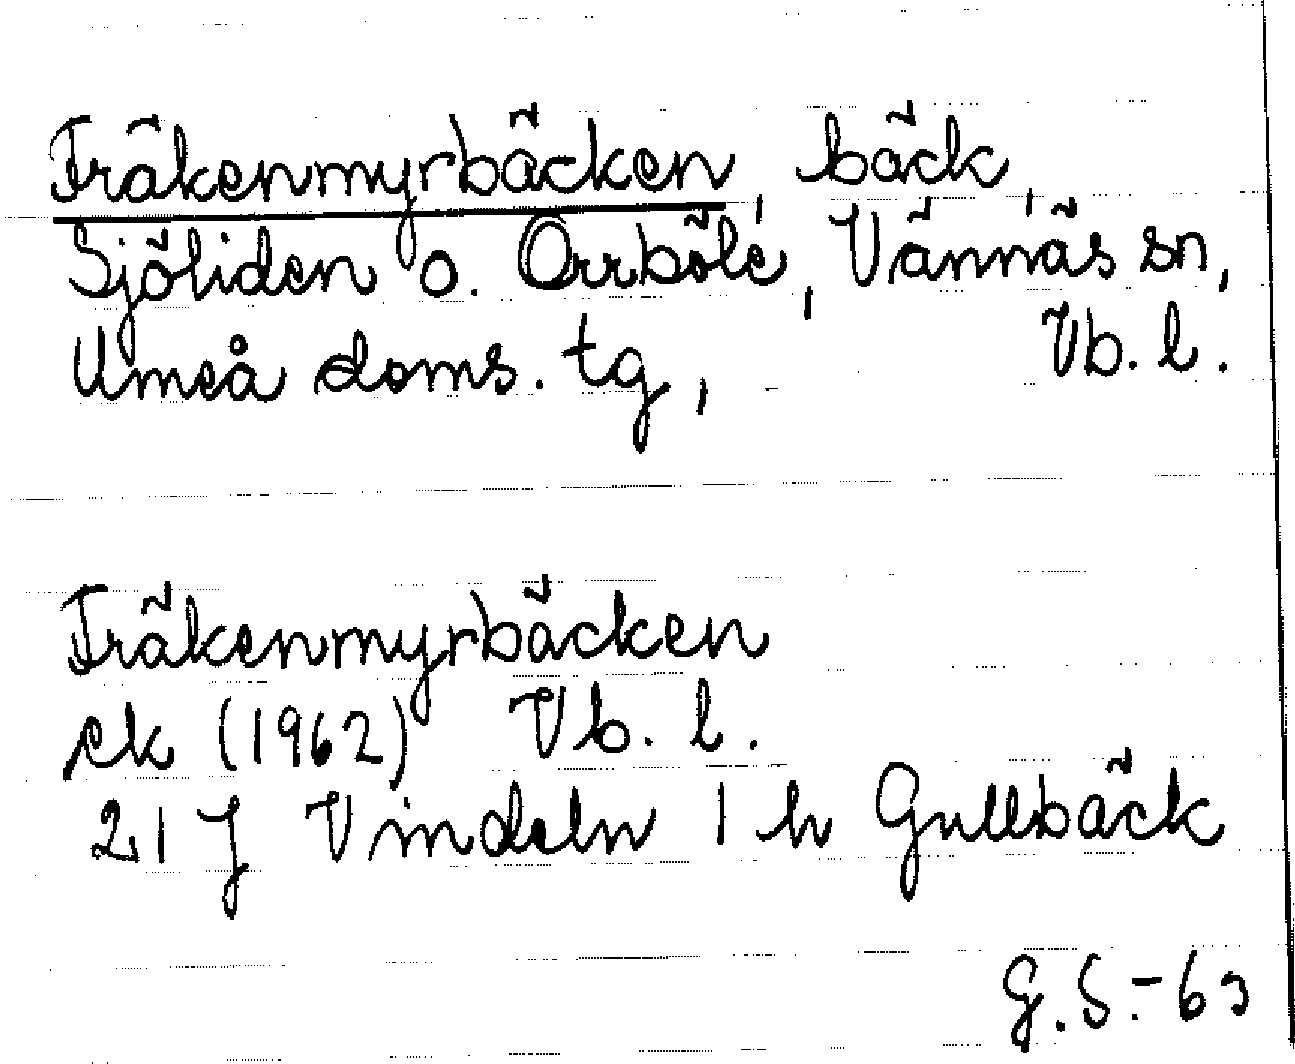 Fräkenmyrbäcken, bäck,
Sjöliden o. Orrböle, Vännäs sn,
Umeå doms. tg, Vb. l.
Fräkenmyrbäcken
ek (1962) Vb. l.
21 J Vindeln 1 h Gullbäck
G.S.-63